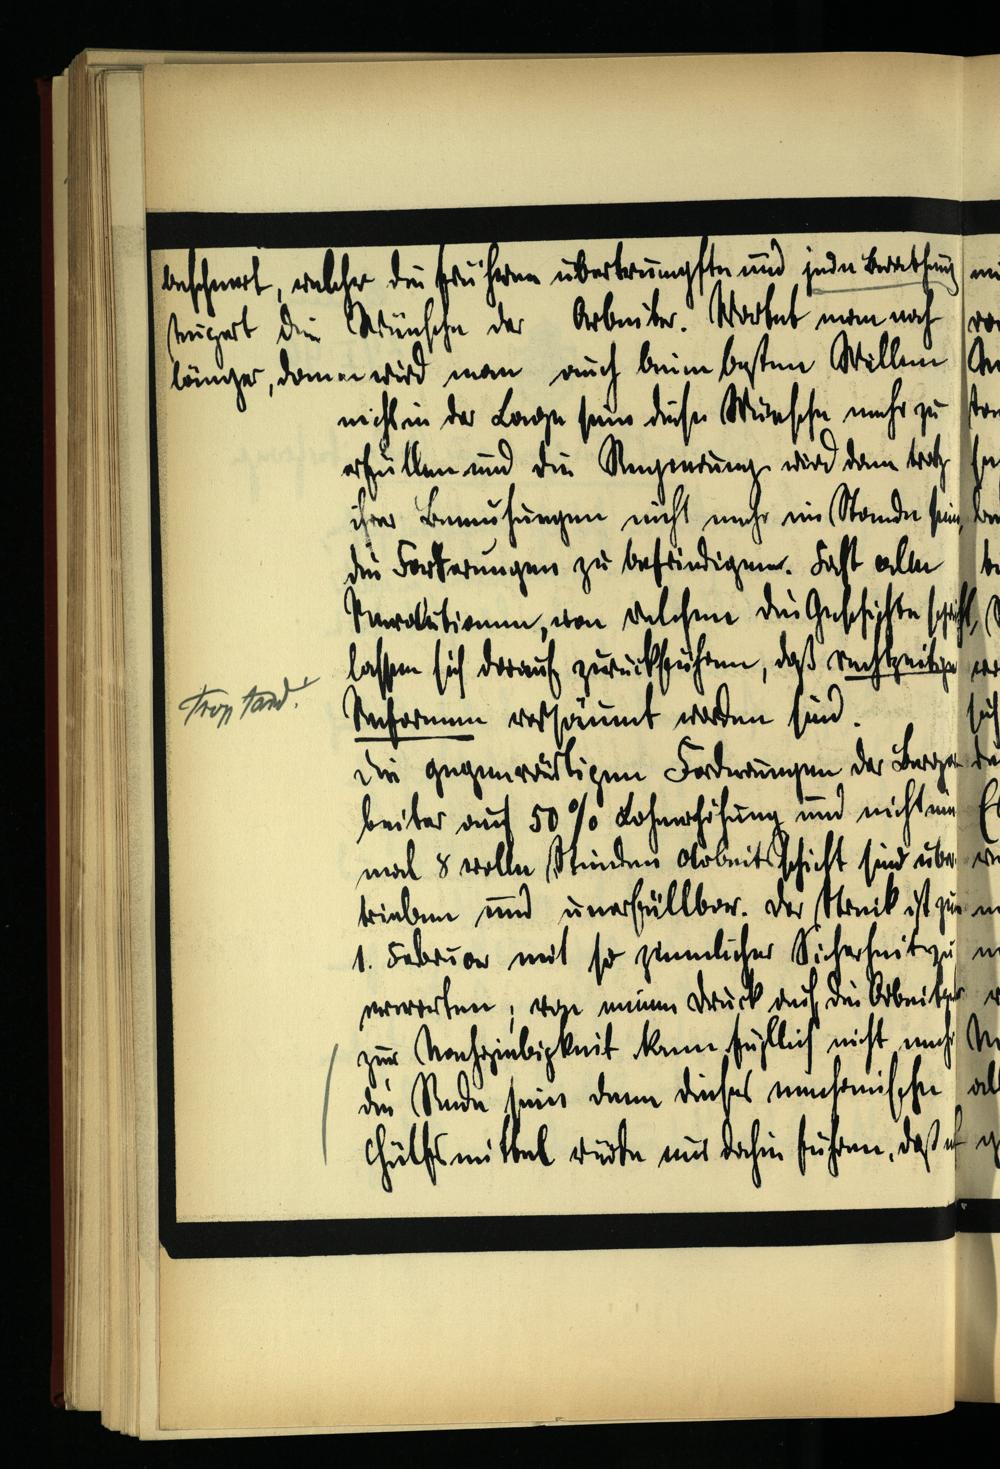 beschwert, welcher die früheren übertrumpfte und jede Berathung
steigert die Wünsche der Arbeiter. Wartet man noch
länger, dann wird man auch beim besten Willen
nicht in der Lage sein diese Wünsche mehr zu
erfüllen und die Regierung wird dann trotz
ihrer Bemühungen nicht mehr im Stande sein,
die Forderungen zu befriedigen. Fast alle
Revolutionen, von welchen die Geschichte spricht,
lassen sich darauf zurückführen, daß rechtzeitige
Trop tard!
Reformen versäumt worden sind.
Die gegenwärtigen Forderungen der Bergar
beiter auf 50 % Lohnerhöhung und nicht ein
mal 8 volle Stunden Arbeitsschicht sind über
trieben und unerfüllbar. Der Streik ist zum
1. Februar mit so ziemlicher Sicherheit zu
erwarten; von einem Druck auf die Arbeitgeber
zur Nachgiebigkeit kann füglich nicht mehr
die Rede sein denn dieses mechanische
Hülfsmittel würde nur dahin führen, daß